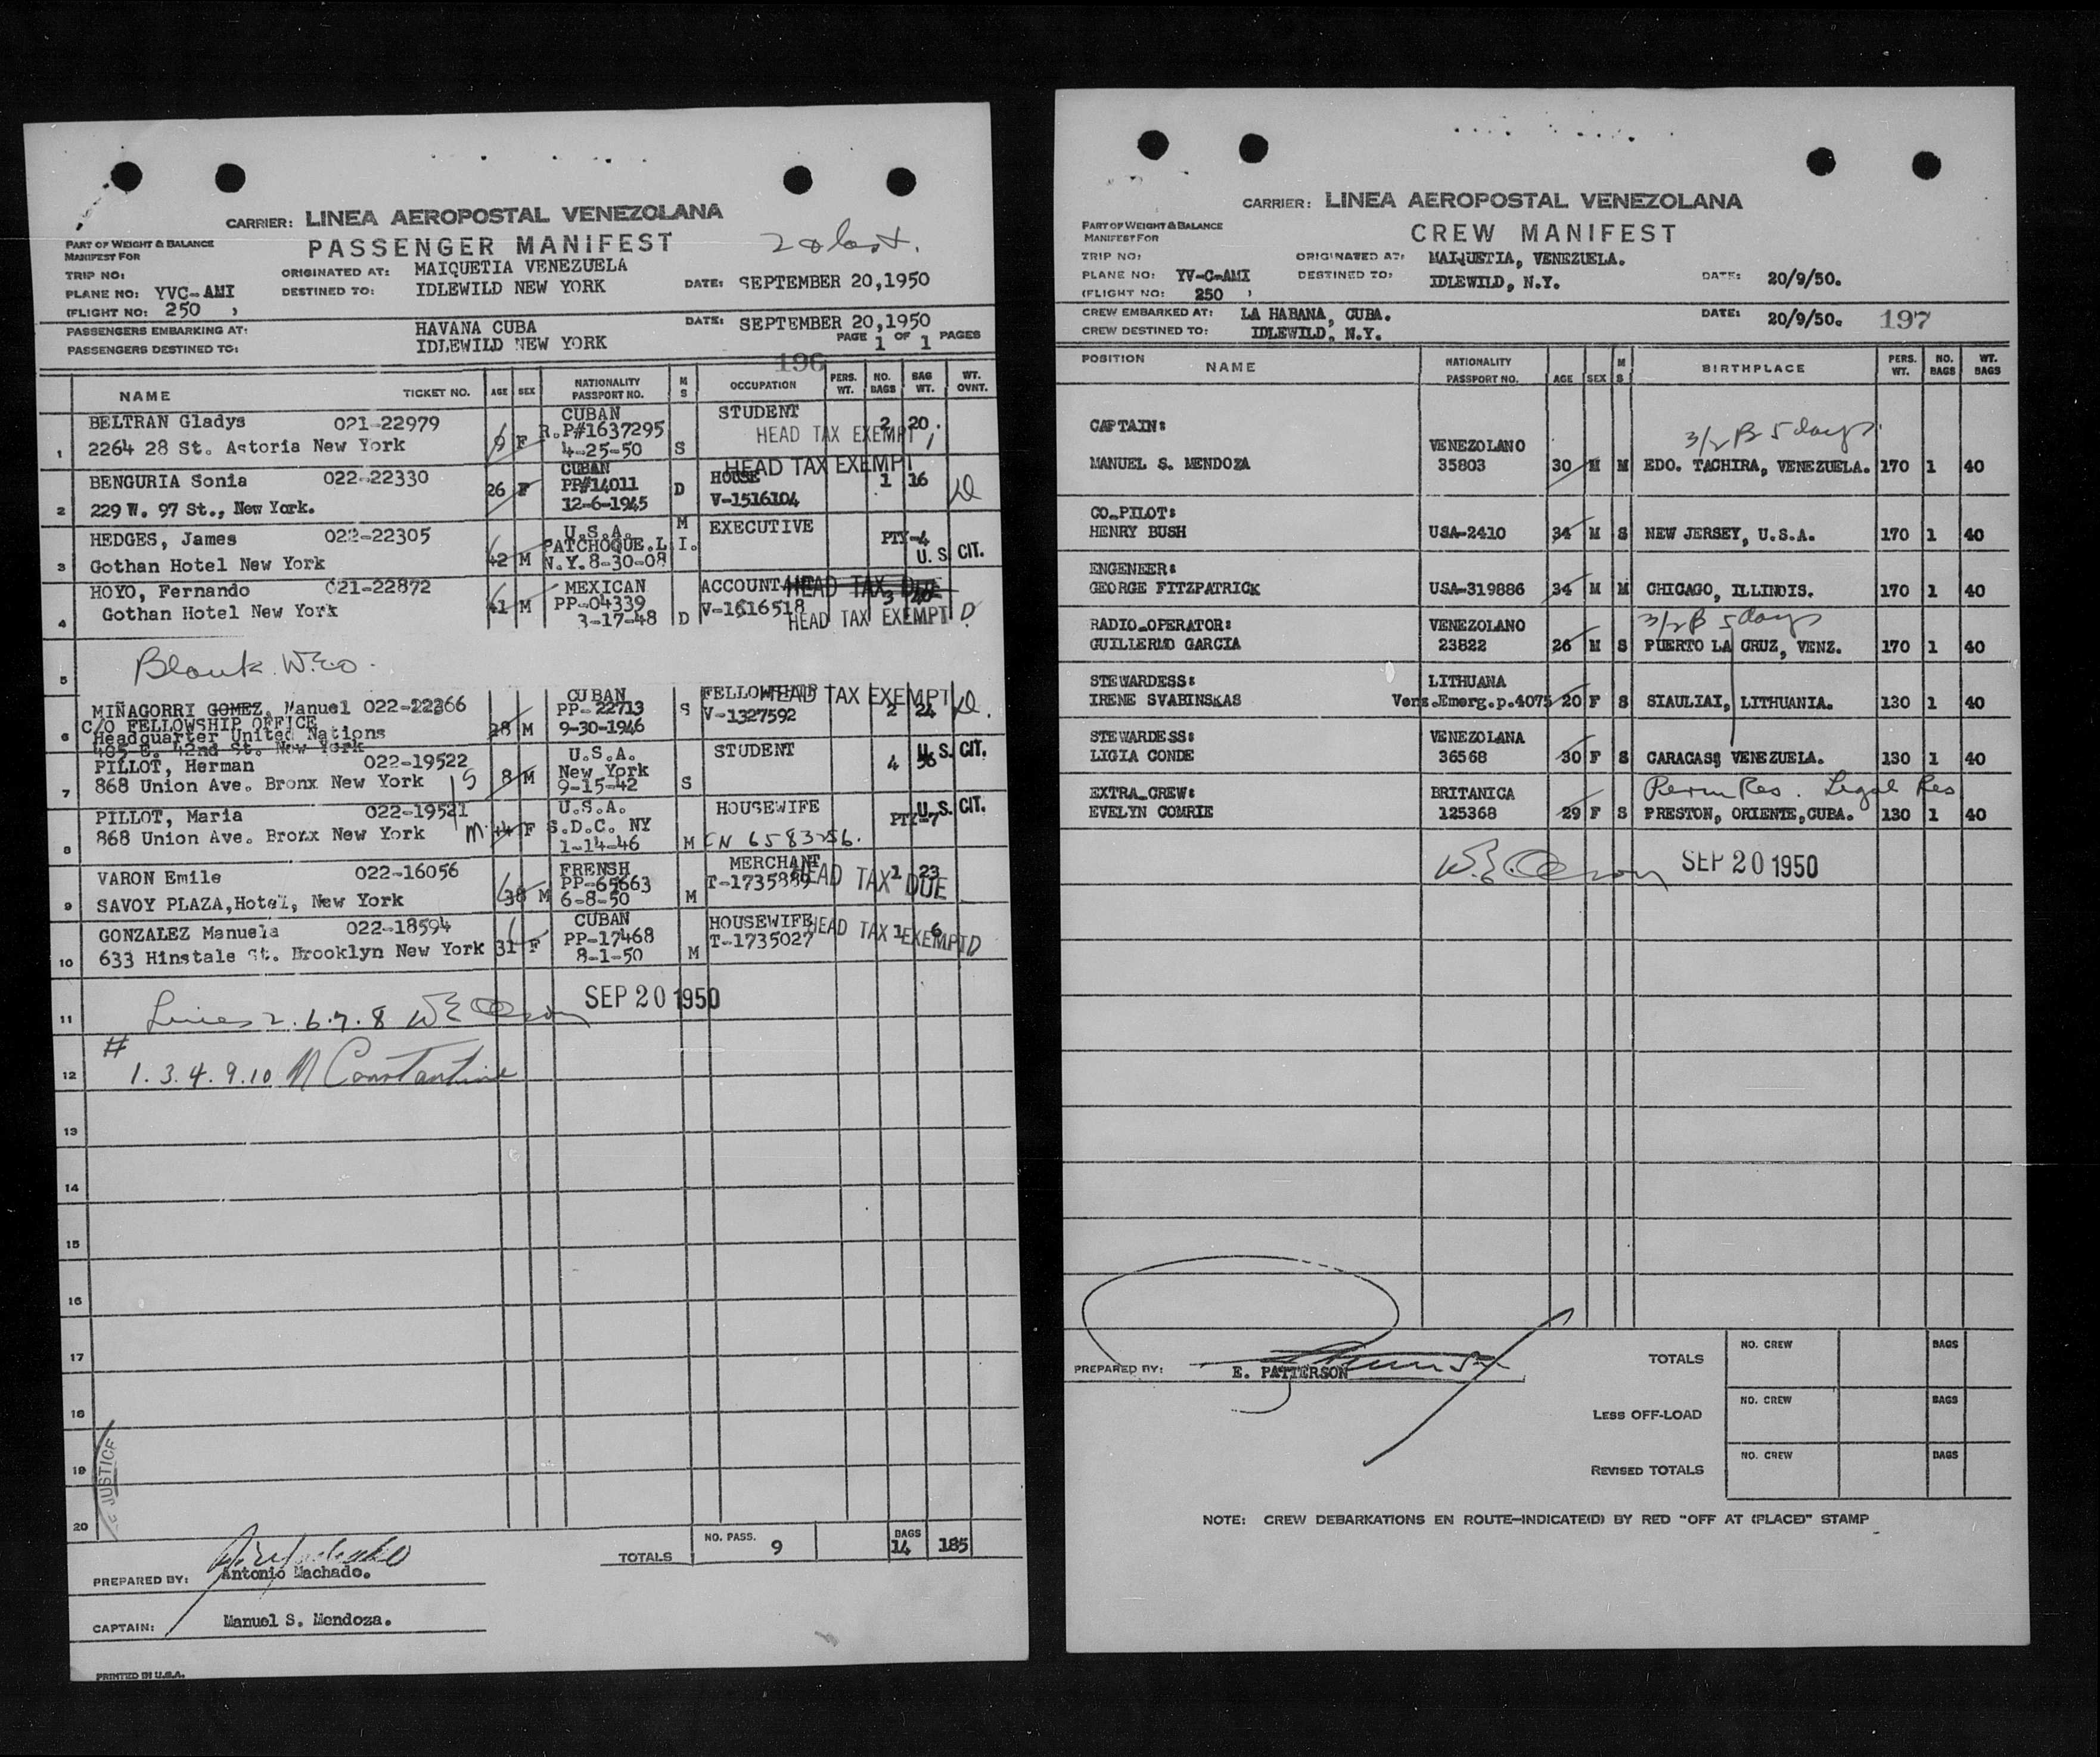 CARRIER: LINEA AEROPOSTAL VENEZOLANA
PART OF WEIGHT & BALANCE
MANIFEST FOR
PASSENGER MANIFEST
TRIP NO:
ORIGINATED AT: MAIQUETIA VENEZUELA
PLANE NO: YVC-AMI
DESTINED TO: IDLEWILD NEW YORK
DATE: SEPTEMBER 20,1950
(FLIGHT NO: 250 )
PASSENGERS EMBARKING AT: HAVANA CUBA
DATE: SEPTEMBER 20,1950
PASSENGERS DESTINED TO: IDLEWILD NEW YORK
PAGE 1 OF 1 PAGES
196
NAME TICKET NO. AGE SEX NATIONALITY PASSPORT NO. M S OCCUPATION PERS. WT. NO. BAGS BAG WT. WT. OVNT.
BELTRAN Gladys 021-22979 CUBAN STUDENT
R.P#1637295 2 20
HEAD TAX EXEMPT
1 2264 28 St. Astoria New York 9 F 4-25-50 S
BENGURIA Sonia 022-22330 CUBAN HEAD TAX EXEMPT
26 F PP#14011 D HOUSE 1 16
2 229 W. 97 St., New York. 12-6-1945 V-1516104
HEDGES, James 022-22305 U.S.A. M EXECUTIVE
PATCHOQUE.L I. PTY-4
3 Gothan Hotel New York 42 M N.Y.8-30-08 U.S. CIT.
HOYO, Fernando 021-22872 MEXICAN ACCOUNTANT HEAD TAX DUE
41 M PP-04339 V-1616518 3 40
4 Gothan Hotel New York 3-17-48 D HEAD TAX EXEMPT D
5 Blank. W.E.O.
MIÑAGORRI GOMEZ, Manuel 022-22366 CUBAN FELLOWSHIP HEAD TAX EXEMPT
C/O FELLOWSHIP OFFICE PP-22713 S V-1327592 2 24
6 Headquarter United Nations 28 M 9-30-1946
405 E. 42nd St. New York
PILLOT, Herman 022-19522 U.S.A. STUDENT U.S. CIT.
8 M New York 4 56
7 868 Union Ave. Bronx New York 9-15-42 S
PILLOT, Maria 022-19521 U.S.A. HOUSEWIFE U.S. CIT.
44 F S.D.C. NY PTY-7
8 868 Union Ave. Bronx New York M 1-14-46 M CN 6583256.
VARON Emile 022-16056 FRENSH MERCHANT
PP-65663 T-1735889 1 23
HEAD TAX DUE
9 SAVOY PLAZA,Hotel, New York 38 M 6-8-50 M
GONZALEZ Manuela 022-18594 CUBAN HOUSEWIFE
31 F PP-17468 T-1735027 1 6
HEAD TAX EXEMPT D
10 633 Hinstale St. Brooklyn New York 8-1-50 M
SEP 20 1950
11 Lines 2.6.7.8
#
12 1.3.4.9.10 N Constantine
13
14
15
16
17
18
19
20
JUSTICE
TOTALS NO. PASS. 9 BAGS 14 185
PREPARED BY: Antonio Machado.
CAPTAIN: Manuel S. Mendoza.
PRINTED IN U.S.A.
CARRIER: LINEA AEROPOSTAL VENEZOLANA
PART OF WEIGHT & BALANCE
MANIFEST FOR
CREW MANIFEST
TRIP NO:
ORIGINATED AT: MAIQUETIA, VENEZUELA.
PLANE NO: YV-C-AMI
DESTINED TO: IDLEWILD, N.Y.
DATE: 20/9/50.
(FLIGHT NO: 250 )
CREW EMBARKED AT: LA HABANA, CUBA.
DATE: 20/9/50. 197
CREW DESTINED TO: IDLEWILD, N.Y.
POSITION NAME NATIONALITY PASSPORT NO. AGE SEX M S BIRTHPLACE PERS. WT. NO. BAGS WT. BAGS
CAPTAIN: 3/2 B 5 days
VENEZOLANO
MANUEL S. MENDOZA 35803 30 M M EDO. TACHIRA, VENEZUELA. 170 1 40
CO-PILOT:
HENRY BUSH USA-2410 34 M S NEW JERSEY, U.S.A. 170 1 40
ENGENEER:
GEORGE FITZPATRICK USA-319886 34 M M CHICAGO, ILLINOIS. 170 1 40
RADIO-OPERATOR: VENEZOLANO 3/2 B 5 days
GUILLERMO GARCIA 23822 26 M S PUERTO LA CRUZ, VENZ. 170 1 40
STEWARDESS: LITHUANA
IRENE SVABINSKAS Vens.Emerg.p.4075 20 F S SIAULIAI, LITHUANIA. 130 1 40
STEWARDESS: VENEZOLANA
LIGIA CONDE 36568 30 F S CARACAS; VENEZUELA. 130 1 40
EXTRA-CREW: BRITANICA Perm Res. Legal Res
EVELYN COMRIE 125368 29 F S PRESTON, ORIENTE,CUBA. 130 1 40
SEP 20 1950
PREPARED BY: E. PATTERSON
TOTALS NO. CREW BAGS
LESS OFF-LOAD NO. CREW BAGS
REVISED TOTALS NO. CREW BAGS
NOTE: CREW DEBARKATIONS EN ROUTE-INDICATE(D) BY RED "OFF AT (PLACE)" STAMP